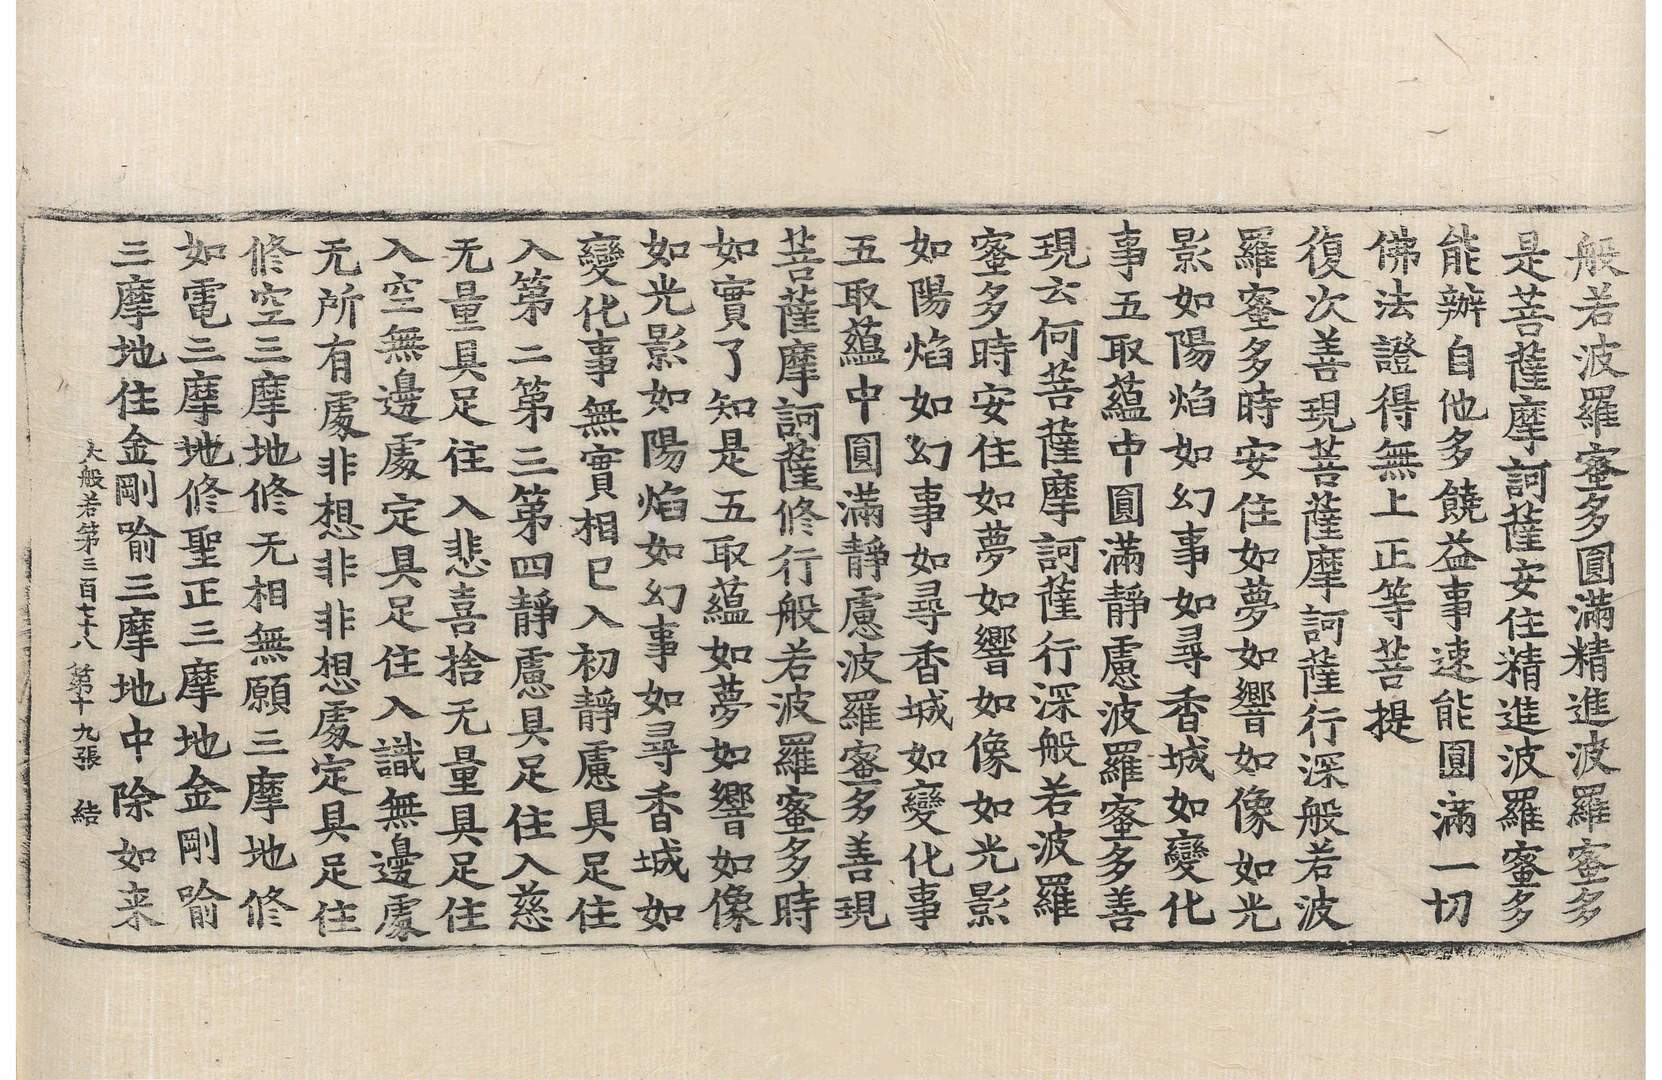 般若波羅蜜多圓滿精進波羅蜜多
是菩薩摩訶薩安住精進波羅蜜多
能辦自他多饒益事速能圓滿一切
佛法證得無上正等菩提
復次善現菩薩摩訶薩行深般若波
羅蜜多時安住如夢如響如像如光
影如陽焰如幻事如尋香城如變化
事五取蘊中圓滿靜慮波羅蜜多善
現云何菩薩摩訶薩行深般若波羅
蜜多時安住如夢如響如像如光影
如陽焰如幻事如尋香城如變化事
五取蘊中圓滿靜慮波羅蜜多善現
菩薩摩訶薩修行般若波羅蜜多時
如實了知是五取蘊如夢如響如像
如光影如陽焰如幻事如尋香城如
變化事無實相已入初靜慮具足住
入第二第三第四靜慮具足住入慈
无量具足住入悲喜捨无量具足住
入空無邊處定具足住入識無邊處
无所有處非想非非想處定具足住
修空三摩地修无相無願三摩地修
如電三摩地修聖正三摩地金剛喻
三摩地住金剛喻三摩地中除如来
大般若第三百七十八 第十九張 結